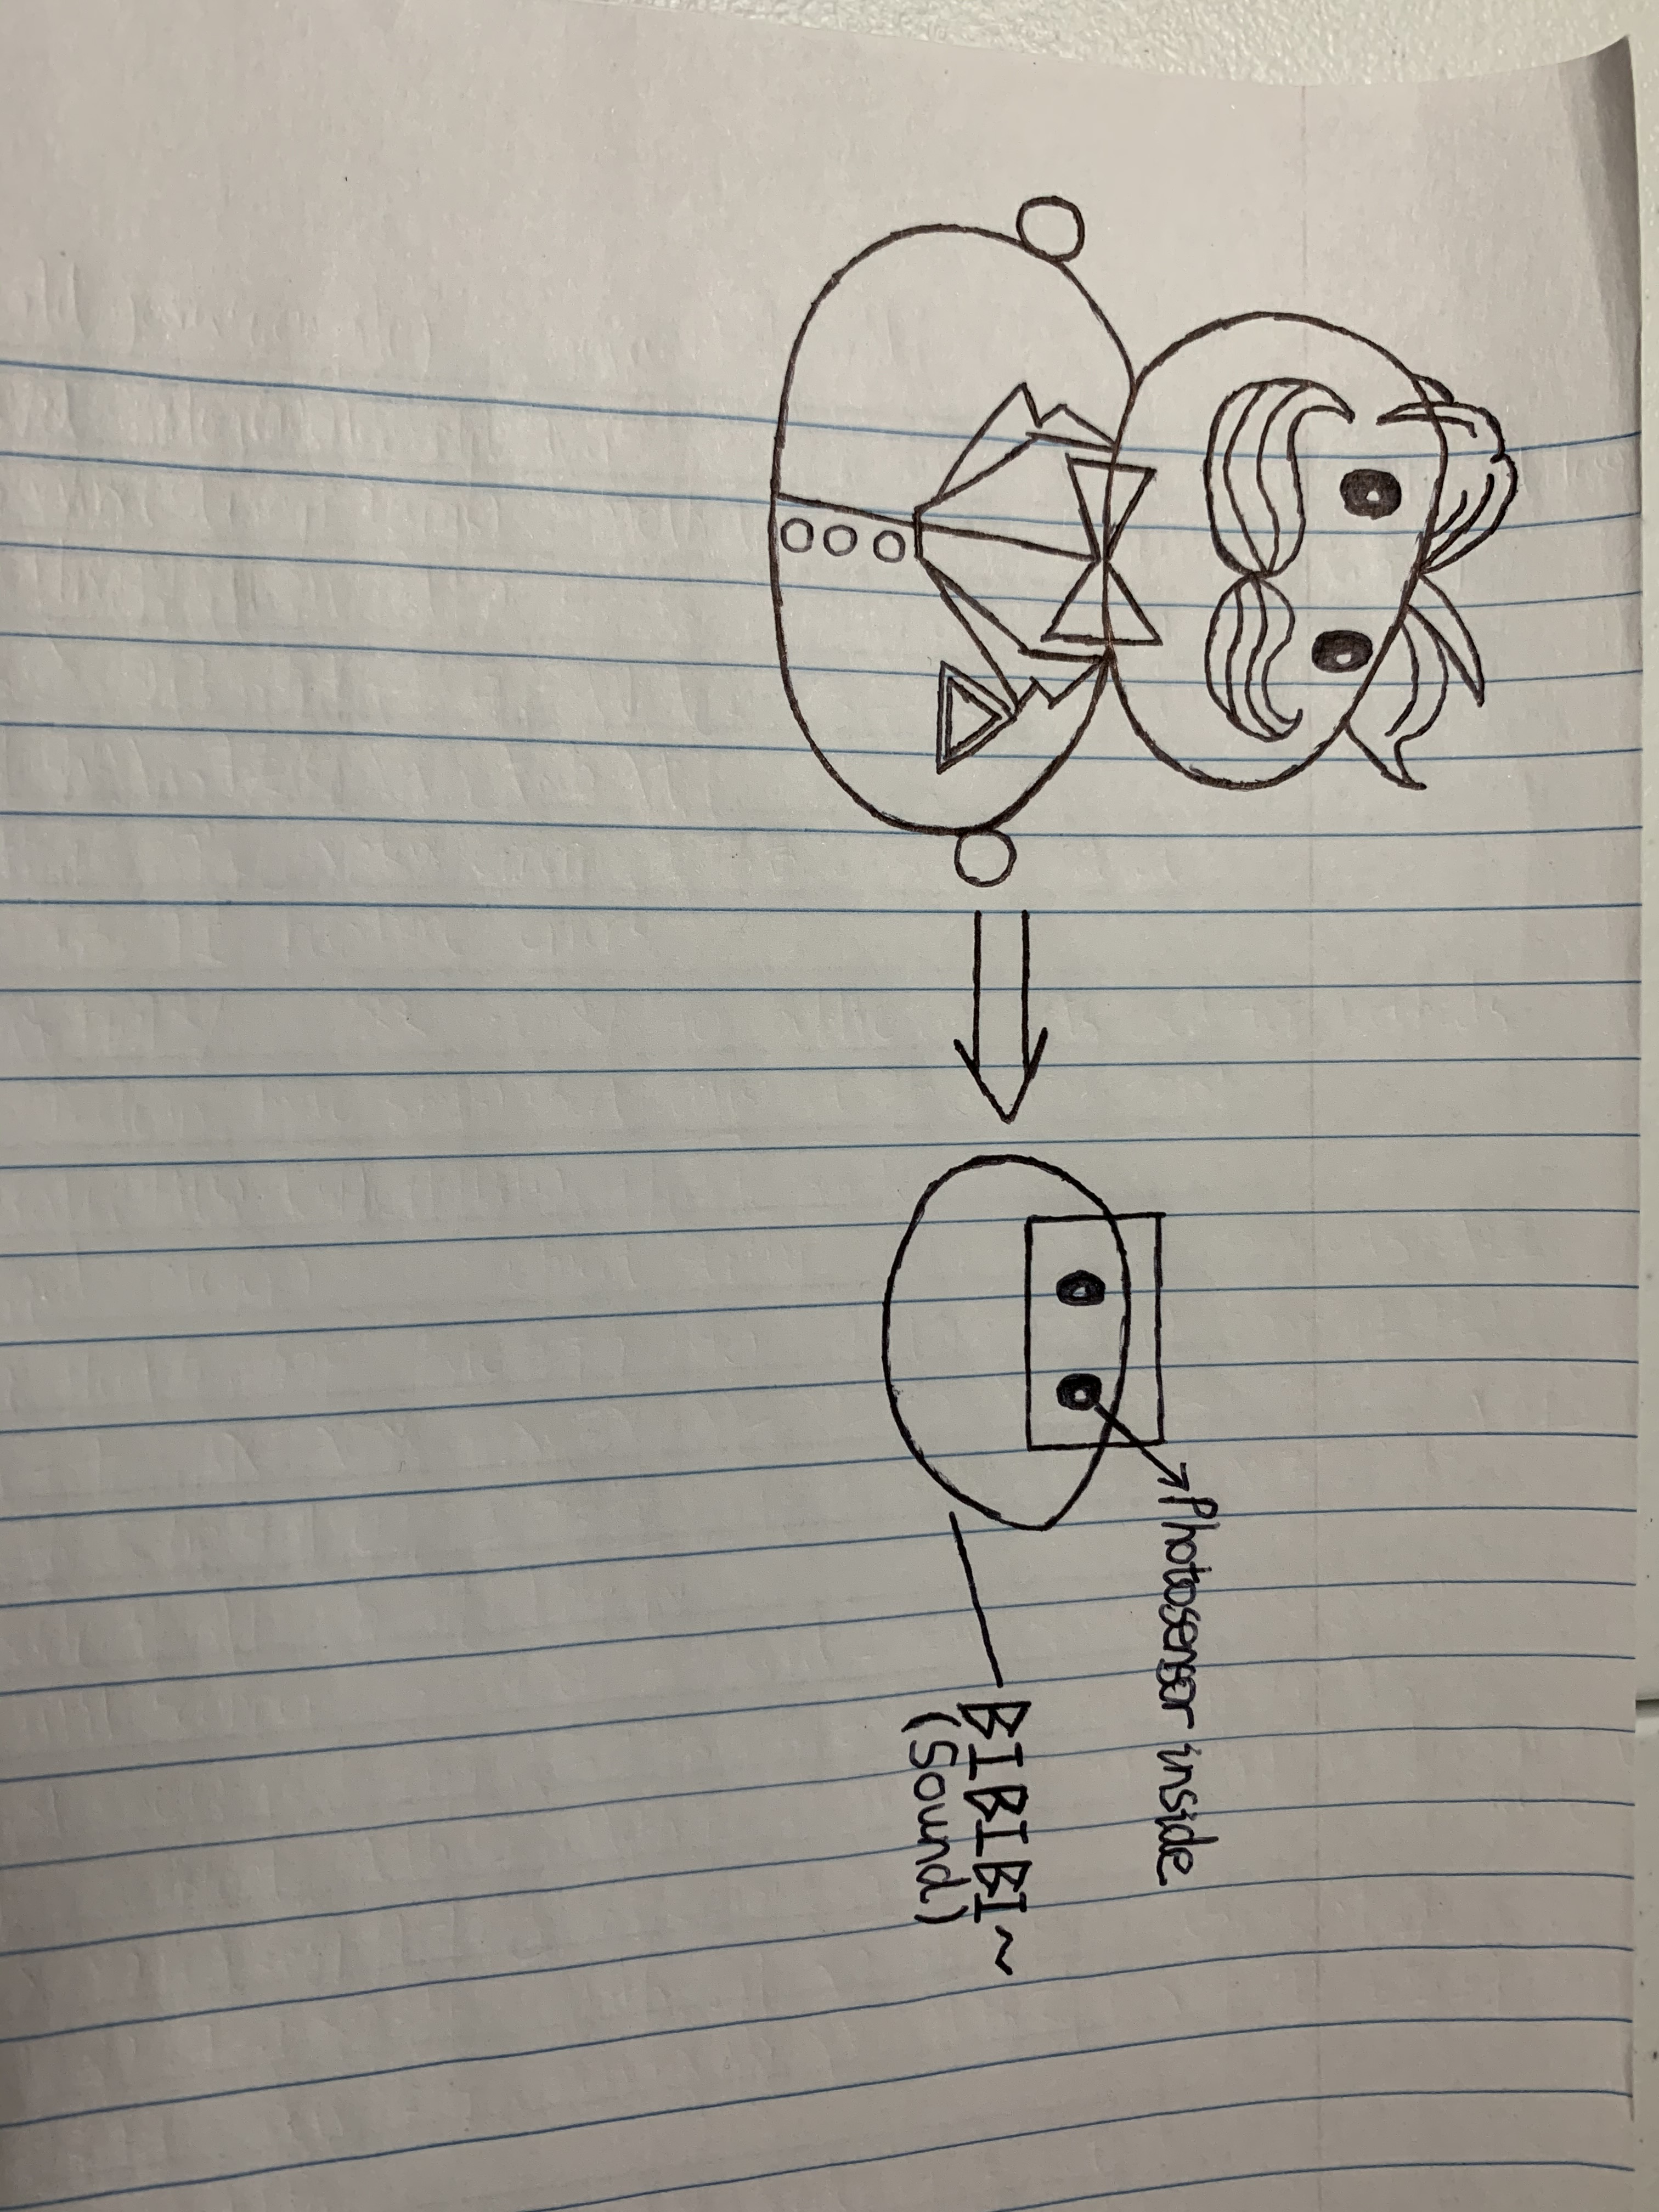 Photosensor inside
BIBIBI~
(Sound)